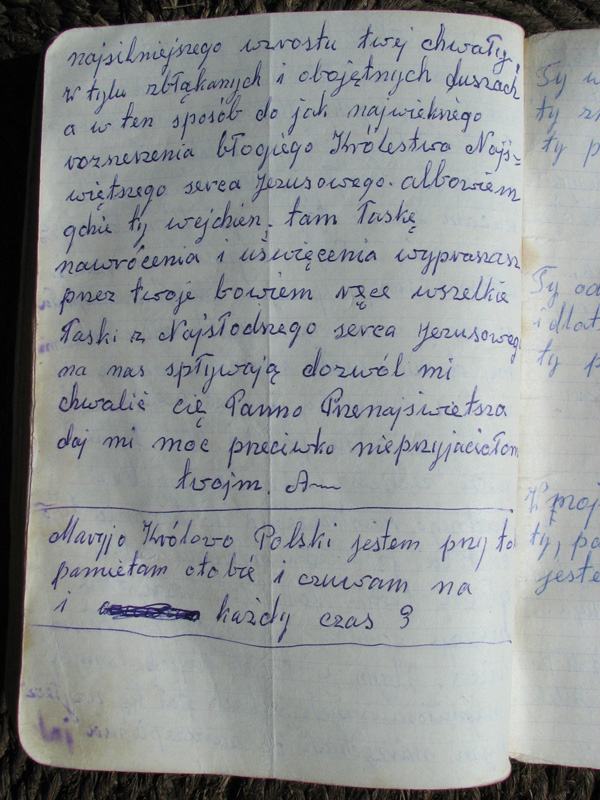 najsilniejszego wzrostu twej chwały,
w tylu zbłąkanych i obojętnych duszach
a w ten sposób do jak najwieknego
rozszerzenia błogiego Królestwa Najś=
więtszego serca Jezusowego. albowiem
gdzie ty wejdzien, tam łaskę
nawrócenia i uświęcenia wypraszasz
przez twoje bowiem ręce wszelkie
łaski z Najsłodszego serca Jezusowego
na nas spływają dozwól mi
chwalić cię Panno Przenajświetsza
daj mi moc przeciwko nieprzyjaciołom
twojm. Am
Maryjo Królowo Polski jestem przy to
pamietam otobie i czuwam na
i każdy czas 3
Ty
ty
ty p
Ty od
i dlat
ty p
ty, pa
jeste